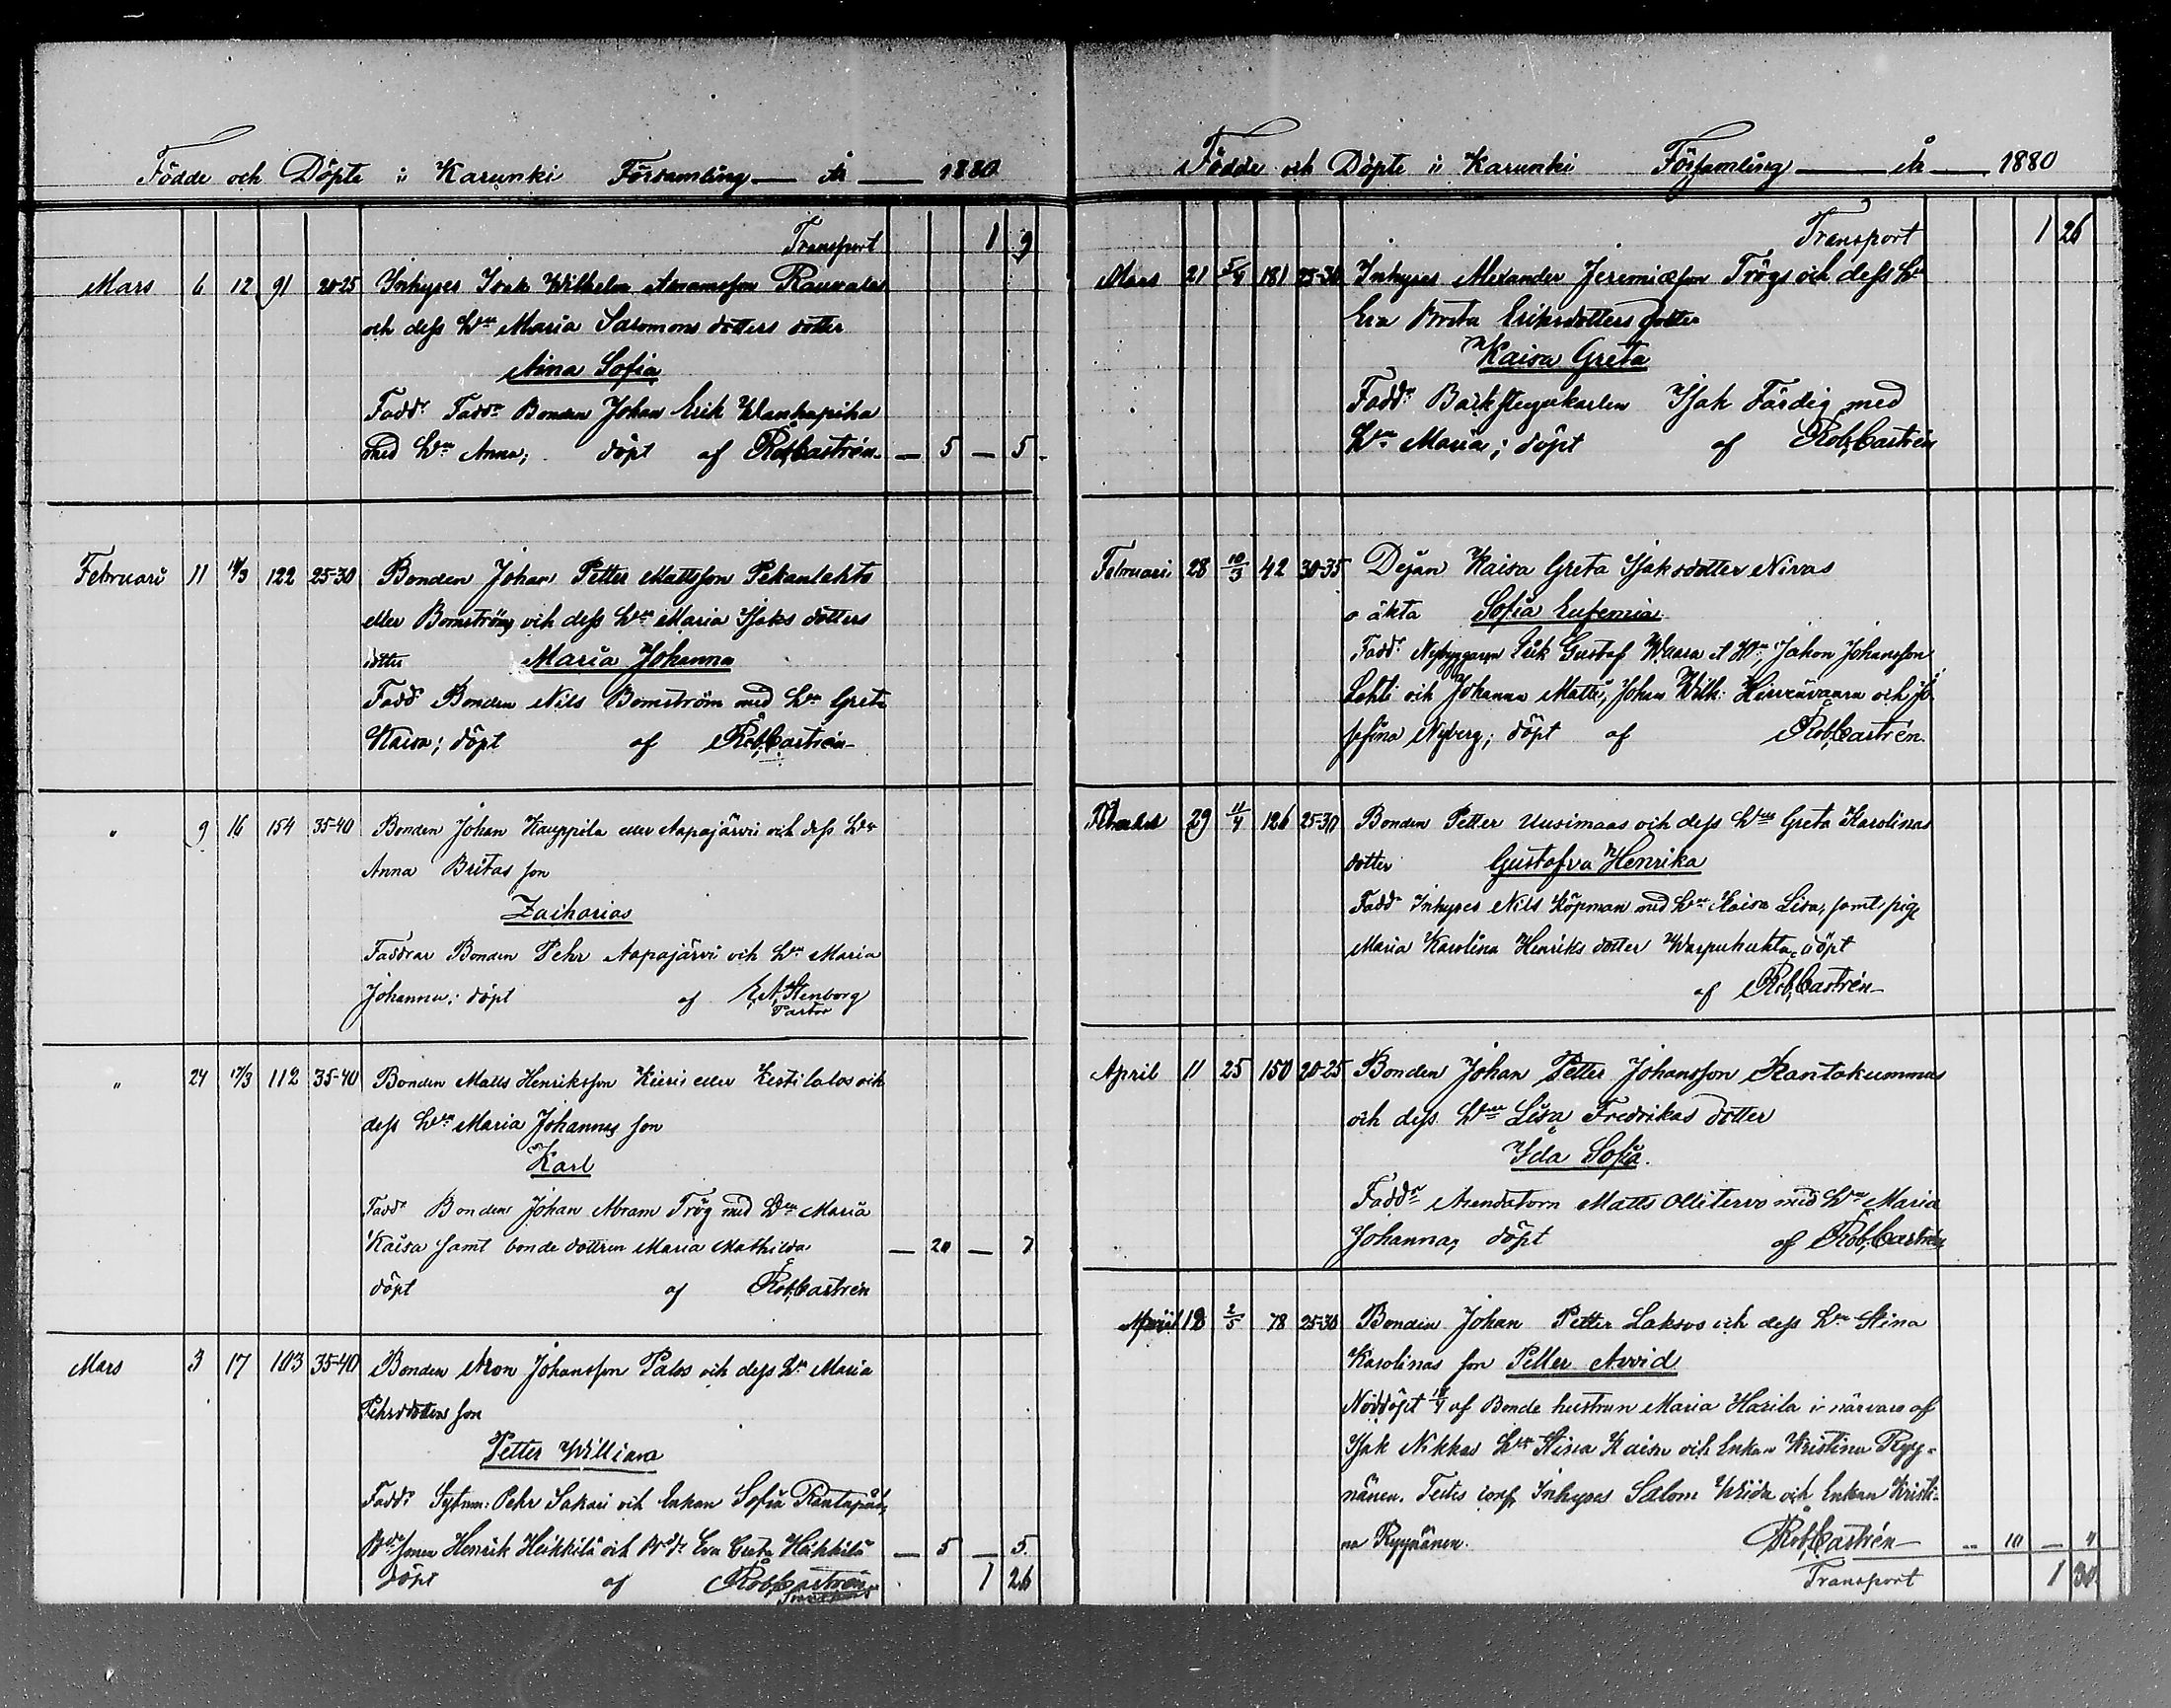 Födde och Döpte i Karunki Församling — år — 1880
Transport 1 9
Mars 6 12 91 20-25 Inhyses Isak Wilhelm Abramsson Rauvalas
och dess Hu Maria Salomons dotters dotter
Aina Sofia
Fadd: Fadd: Bonden Johan Erik Wanhapiha
med Hu Anna; döpt af Rob. Castrén — 5 — 5
Februari 11 14/3 122 25-30 Bonden Johan Petter Mattsson Pekanlahto
eller Bomström och dess Hu Maria Isaks dotters
dotter Maria Johanna
Fadd: Bonden Nils Bomström med Hu Greta
Kaisa; döpt af Rob. Castrén
" 9 16 154 35-40 Bonden Johan Kauppila eller Aapajärvi och dess Hu
Anna Britas son
Zacharias
Faddrar Bonden Pehr Aapajärvi och Hu Maria
Johanna; döpt af Stenborg
Pastor
" 24 17/3 112 35-40 Bonden Matts Henriksson eller Kestilatos och
dess Hu Maria Johannas son
Karl
Fadd: Bonden Johan Abram Frög med Hu Maria
Kaisa samt bonde dottren Maria Mathilda — 20 — 7
döpt af Rob. Castrén
Mars 3 17 103 35-40 Bonden Aron Johansson Palos och dess Hu Maria
Pehrsdotters son
Petter William
Fadd: Sytnm: Pehr Sakari och Enkan Sofia
Henrik Heikkilä och Eva Greta Heikkilä — 5 — 5
döpt af Rob. Castrén 1 26
Födde och Döpte i Karunki Församling — år — 1880
Transport 1 26
Mars 21 5/4 181 25-30 Inhyses Alexander Jeremiæson Frögs och dess Hu
Eva Brita Eriksdotters dotter
Kaisa Greta
Fadd: Isak Färdig med
Hu Maria; döpt af Rob. Castrén
Februari 28 10/3 42 30-35 Dejan Kaisa Greta Isaksdotter Nivas
o äkta Sofia Eufemia
Fadd: Nybyggaren Erik Gustaf Waara et Hu, Johansson
Lehti och Johanna Matti, Johan Wilh: Hirvenvaara och Jo-
sefina Nyberg; döpt af Rob. Castrén
29 11/4 126 25-30 Bonden Petter Uusimaas och dess Hu Greta Karolinas
dotter Gustafva Henrika
Fadd: Inhyses Nils Köpman med Hu Kaisa Lisa, samt pig
Maria Karolina Henriks dotter döpt
af Rob. Castrén
April 11 25 150 20-25 Bonden Johan Petter Johansson Rantakummas
och dess Hu Lisa Fredrikas dotter
Ida Sofia
Fadd: Arendatorn Matts Ollitervo med Hu Maria
Johanna, döpt af Rob. Castrén
April 18 2/5 78 25-30 Bonden Johan Petter Laksos och dess Hu Stina
Karolinas son Petter Arvid
Nöddöpt af Bonde hustrun Maria Harila i närvaro af
Isak Nikkas Hu Stina Kaisa och Enkan Kristina Ryy-
nänen. Testes conf. Inhyses Salom och Enkan Kristi-
na Ryynänen Rob. Castrén — 10 — 4
Transport 1 30